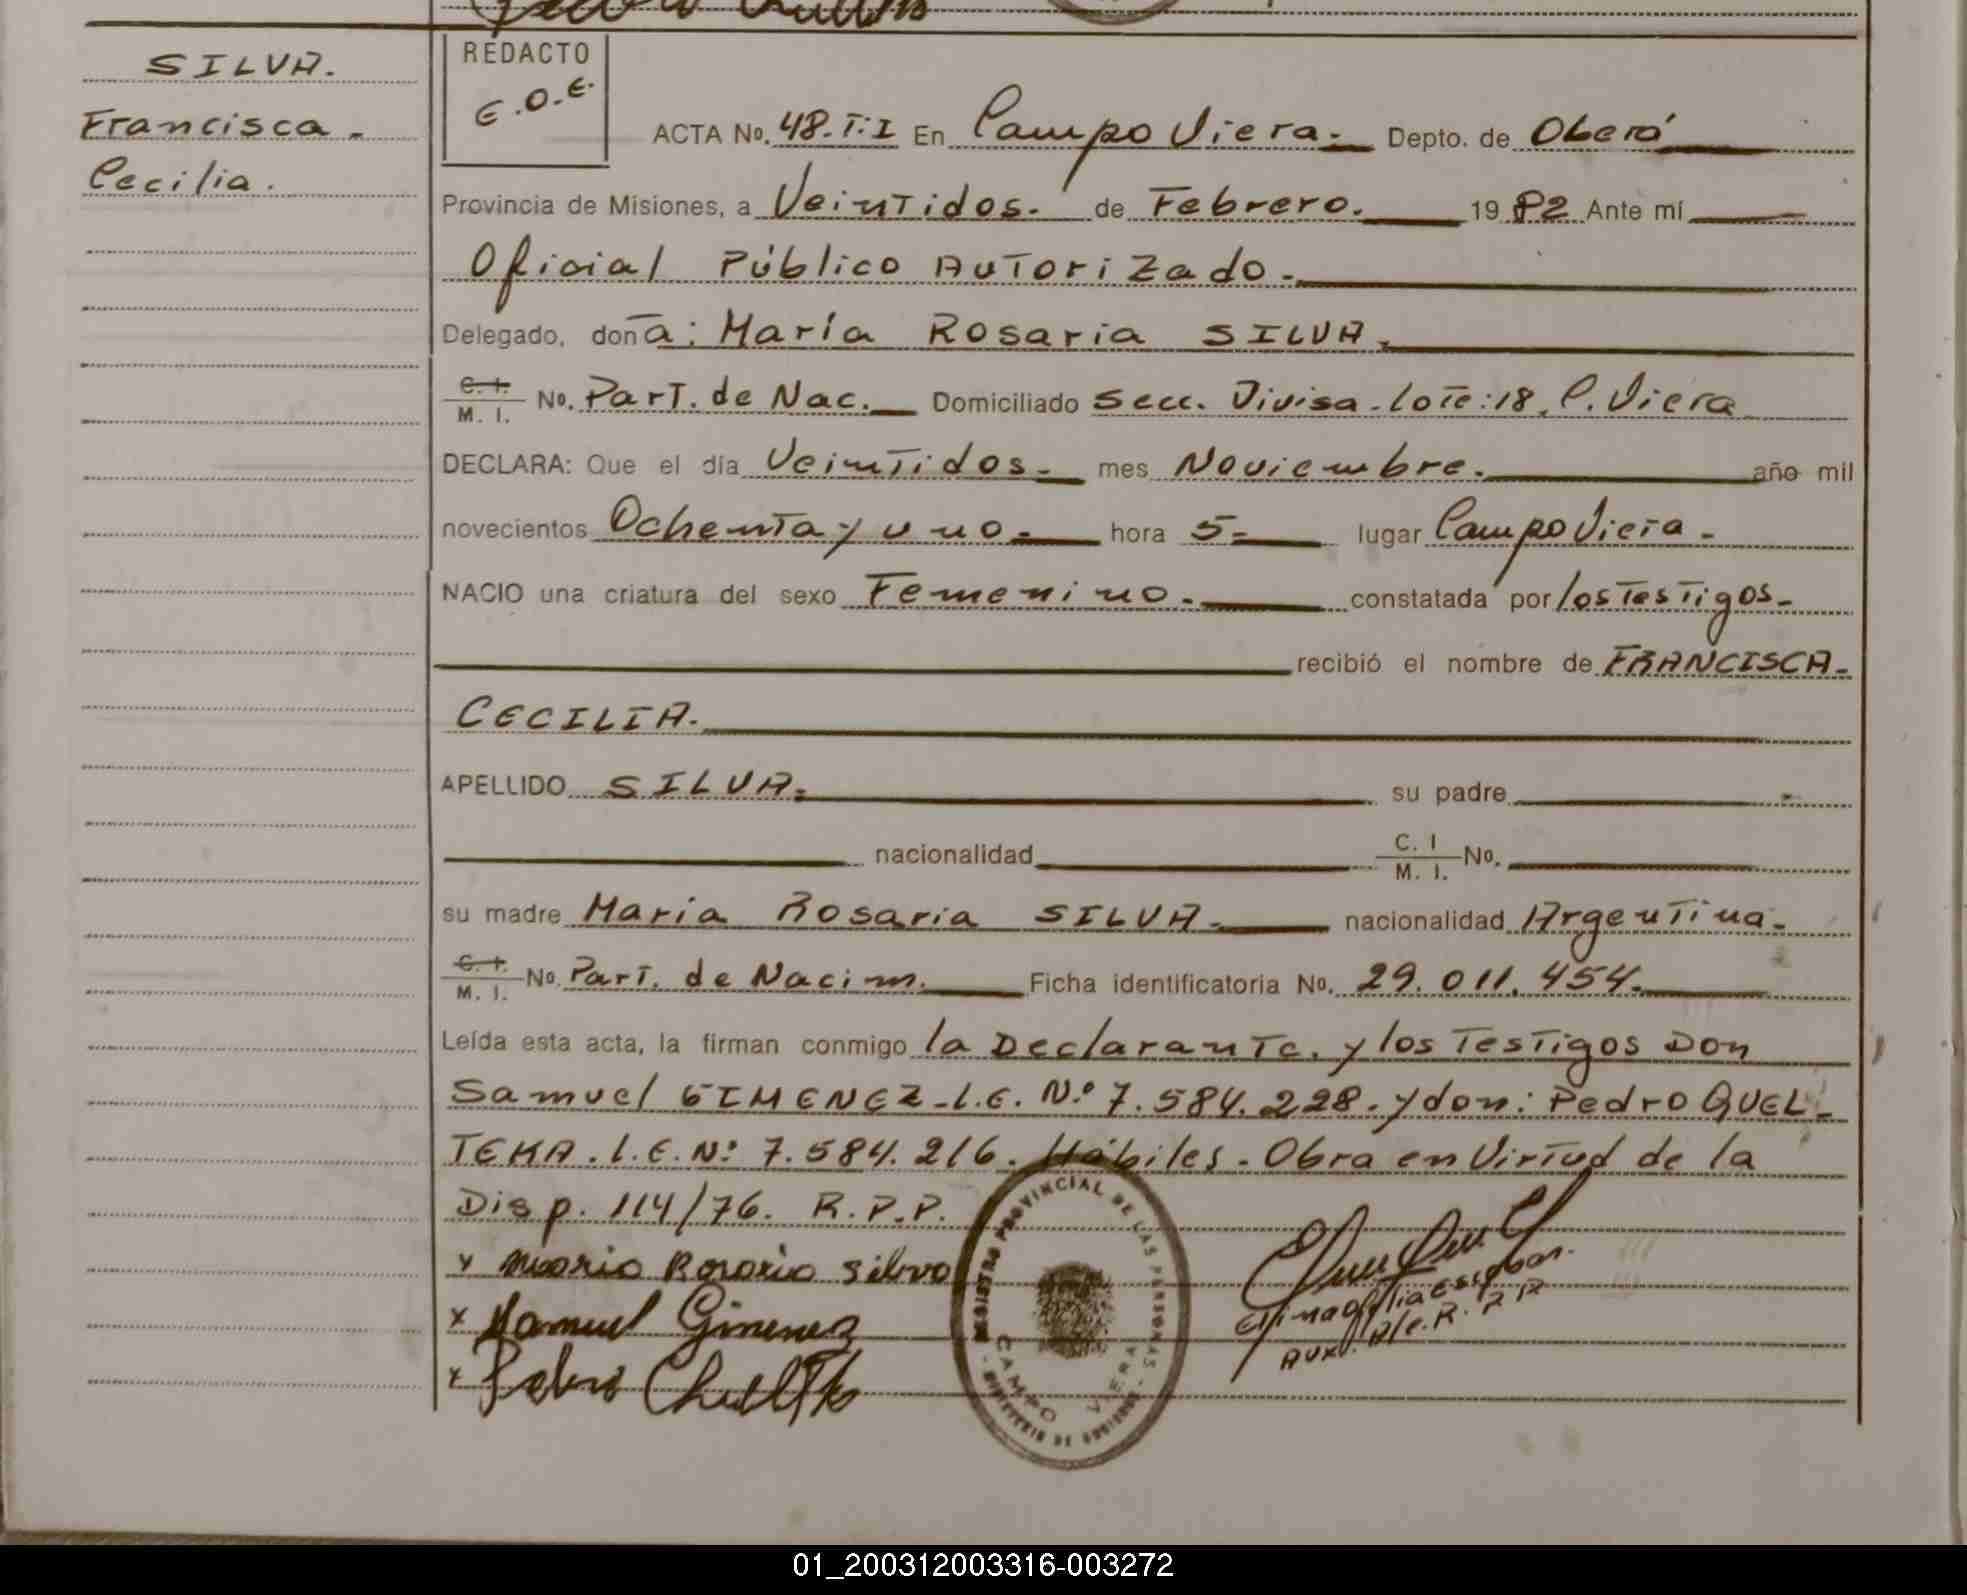 SILVA.
Francisca -
Cecilia.
REDACTO
E.O.E.
ACTA No. 48. T: I En Campo Viera.- Depto. de Oberá
Provincia de Misiones, a Veintidos.- de Febrero. 19 82 Ante mí
Oficial Público Autorizado.-
Delegado, don a: María Rosaria SILVA.
C. I. M. I. No. Part. de Nac. Domiciliado Secc. Divisa. lote: 18. C. Viera
DECLARA: Que el día Veintidos.- mes Noviembre. año mil
novecientos Ochenta y uno.- hora 5- lugar Campo Viera -
NACIO una criatura del sexo Femenino.- constatada por los Testigos-
recibió el nombre de FRANCISCA-
CECILIA.
APELLIDO SILVA. su padre
nacionalidad C. I M. I. No.
su madre María Rosaria SILVA.- nacionalidad Argentina-
C. I. M. I. No. Part. de Nacim. Ficha identificatoria No. 29.011.454.
Leída esta acta, la firman conmigo la Declarante. y los Testigos Don
Samuel GIMENEZ - L.E. N.º 7.584.228. y don: Pedro QUEL-
TEKA. L.E. Nº 7.584.216. Hábiles - Obra en Virtud de la
Disp. 114/76. R.P.P.
x Maria Rosaria Silva
x Samuel Gimenez
x Pedro
REGISTRO PROVINCIAL DE LAS PERSONAS
CAMPO VIERA
MINISTERIO DE GOBIERNO
Escobar.
Aux. R.P.P
01_200312003316-003272